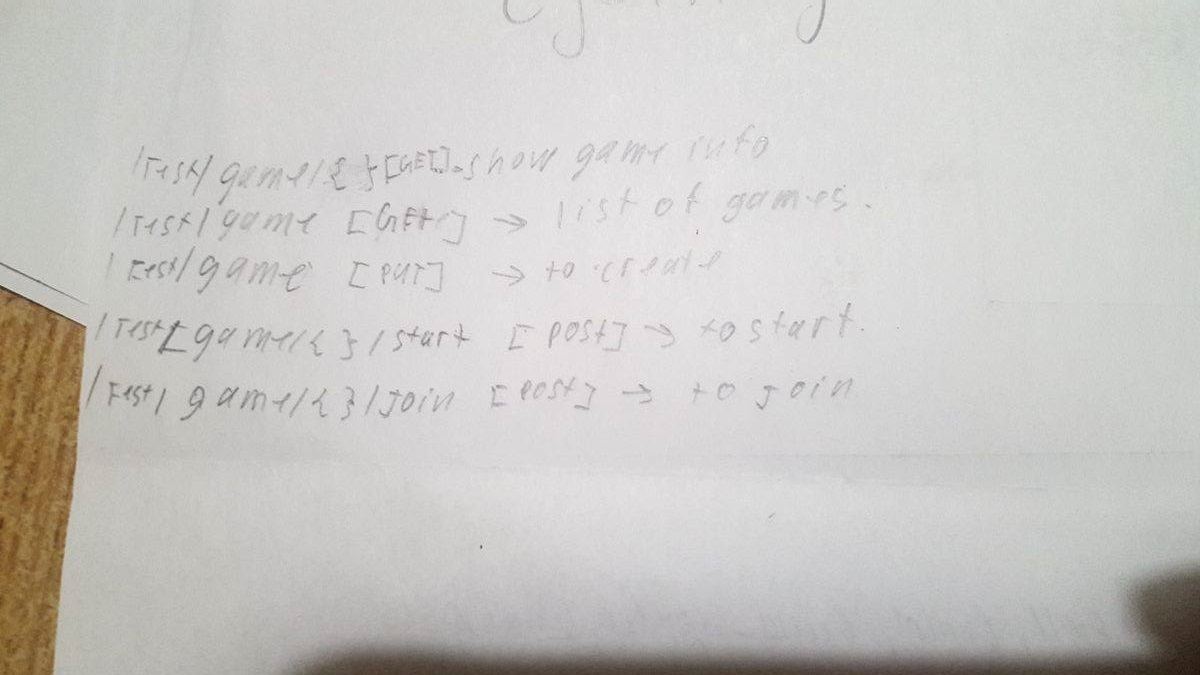 /Test/game/{}[GET]-show game info
/Test/game [GET] → list of games.
/Test/game [PUT] → to create
/Test[game/{}/start [post] → to start.
/Test/game/{}/join [post] → to join